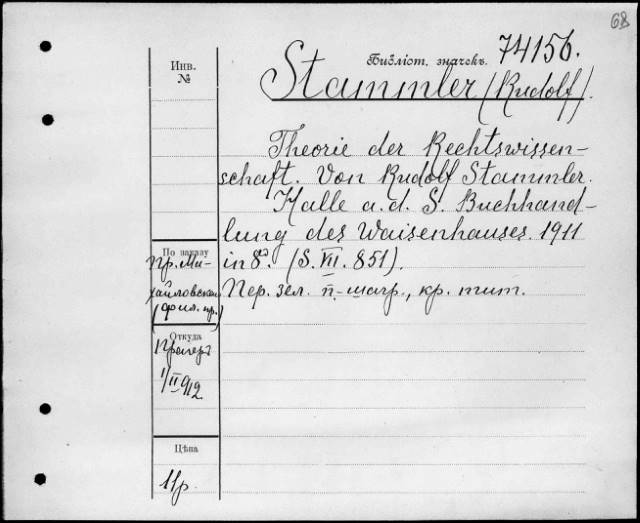 68
Библіот. значекъ. 74156.
Инв.
№
Stammler (Rudolf).
Theorie der Rechtswissen-
schaft. Von Rudolf Stammler.
Halle a. d. S. Buchhand-
lung des Waisenhauses. 1911
in 8º. (S. VII. 851).
Пер. зел. п.-шагр., кр. тит.
По заказу
пр. Ми-
хайловскаго
(фил. пр.)
Откуда
1/II 912
Цѣна
11 р.